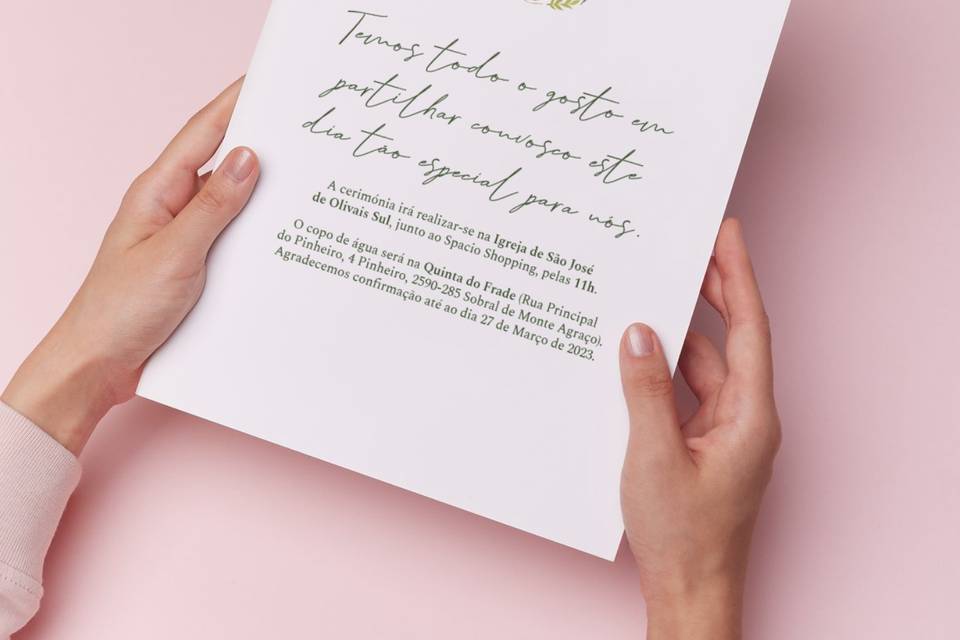 Temos todo o gosto em
partilhar convosco este
dia tão especial para nós.
A cerimónia irá realizar-se na Igreja de São José
de Olivais Sul, junto ao Spacio Shopping, pelas 11h.
O copo de água será na Quinta do Frade (Rua Principal
do Pinheiro, 4 Pinheiro, 2590-285 Sobral de Monte Agraço).
Agradecemos confirmação até ao dia 27 de Março de 2023.